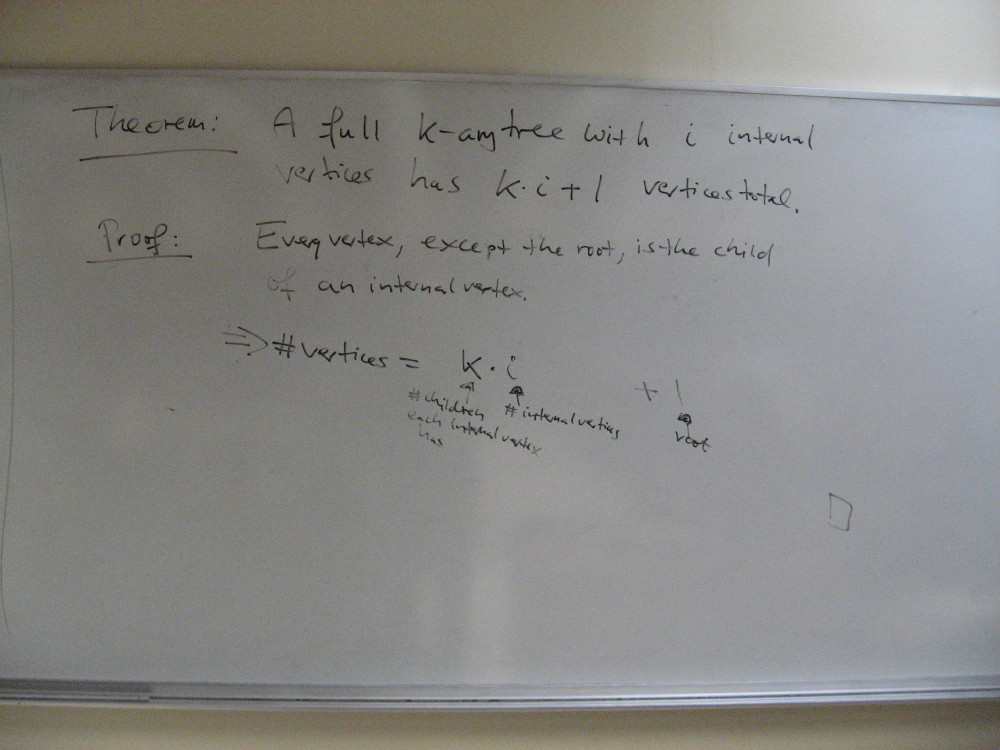 Theorem: A full k-ary tree with i internal
vertices has k·i+1 vertices total.
Proof: Every vertex, except the root, is the child
of an internal vertex.
⇒ #vertices = k · i + 1
#children # internal vertices root
each internal vertex
has
□